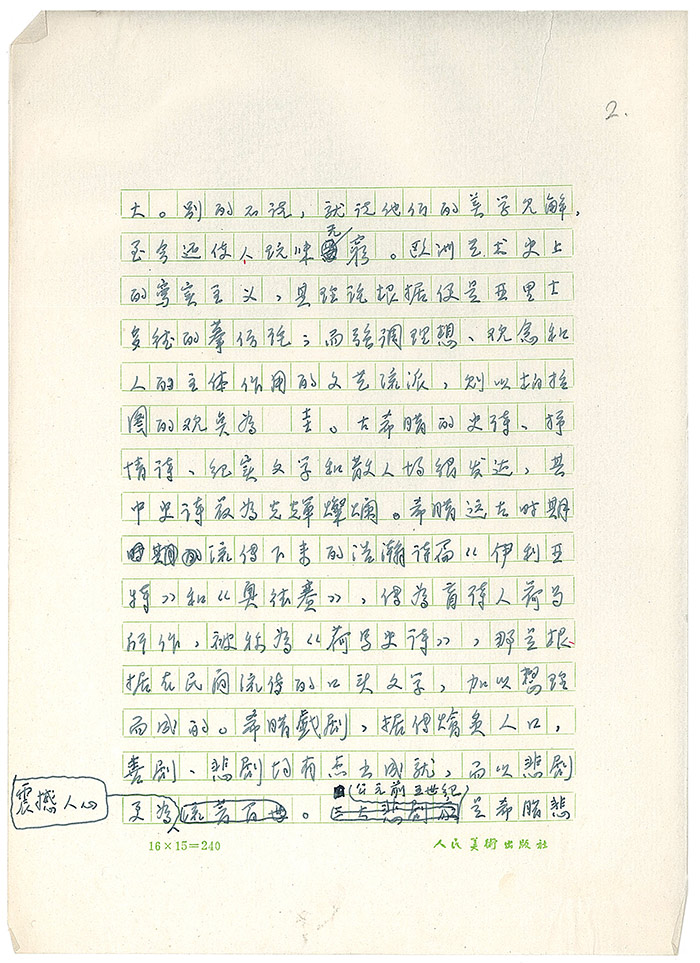 2.
大。别的不说，就说他们的美学见解，
至今还使人玩味无穷。欧洲艺术史上
的写实主义，其理论根据便是亚里士
多德的摹仿说；而强调理想、观念和
人的主体作用的文艺流派，则以柏拉
图的观点为 圭。古希腊的史诗、抒
情诗、纪实文学和散文均很发达，其
中史诗最为光辉灿烂。希腊远古时期
流传下来的浩瀚诗篇《伊利亚
特》和《奥德赛》，传为盲诗人荷马
所作，被称为《荷马史诗》，那是根
据在民间流传的口头文学，加以整理
而成的。希腊戏剧，据传脍炙人口，
喜剧、悲剧均有杰出成就，而以悲剧
更为震撼人心。公元前五世纪是希腊悲
16×15=240 人民美術出版社